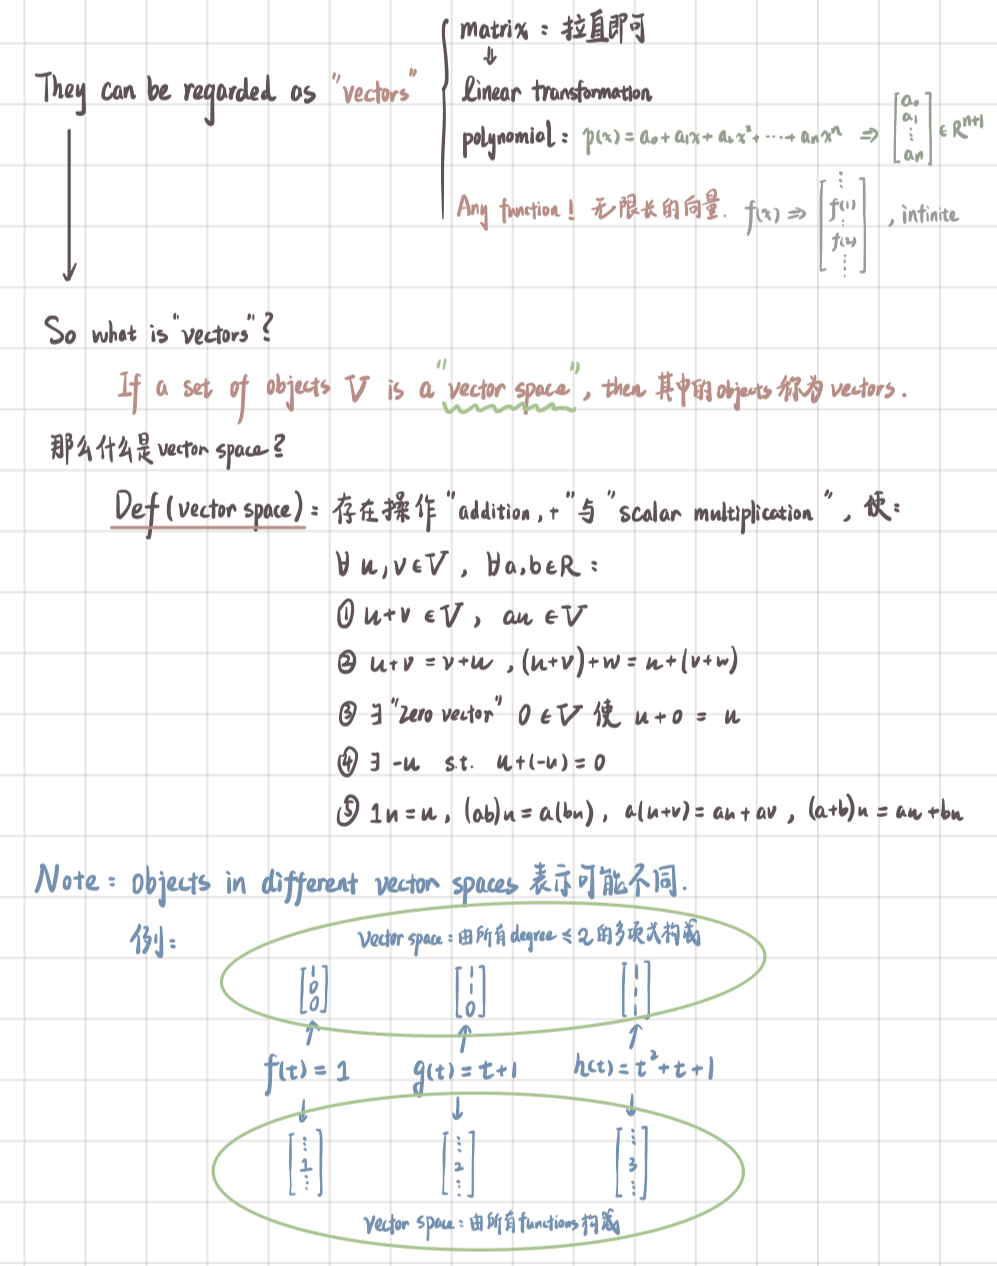 matrix : 拉直即可
↓
They can be regarded as "vectors"
linear transformation
polynomial : p(x) = a₀ + a₁x + a₂x² + ⋯ + aₙxⁿ ⇒ [a₀ a₁ ⋮ aₙ] ∈ Rⁿ⁺¹
Any function ! 无限长的向量. f(x) ⇒ [⋮ f(1) ⋮ f(2) ⋮] , infinite
So what is "vectors" ?
If a set of objects V is a "vector space", then 其中的objects称为 vectors.
那么什么是 vector space ?
Def (vector space) : 存在操作 "addition, +" 与 "scalar multiplication", 使:
∀ u, v ∈ V , ∀ a, b ∈ R :
① u+v ∈ V , au ∈ V
② u+v = v+u , (u+v)+w = u+(v+w)
③ ∃ "zero vector" 0 ∈ V 使 u+0 = u
④ ∃ -u s.t. u+(-u) = 0
⑤ 1u = u , (ab)u = a(bu) , a(u+v) = au+av , (a+b)u = au+bu
Note : objects in different vector spaces 表示可能不同.
例:
vector space : 由所有 degree ≤ 2 的多项式构成
[1 0 0] [1 1 0] [1 1 1]
f(t) = 1 g(t) = t+1 h(t) = t²+t+1
[⋮ 1 ⋮] [⋮ 2 ⋮] [⋮ 3 ⋮]
vector space : 由所有 functions 构成